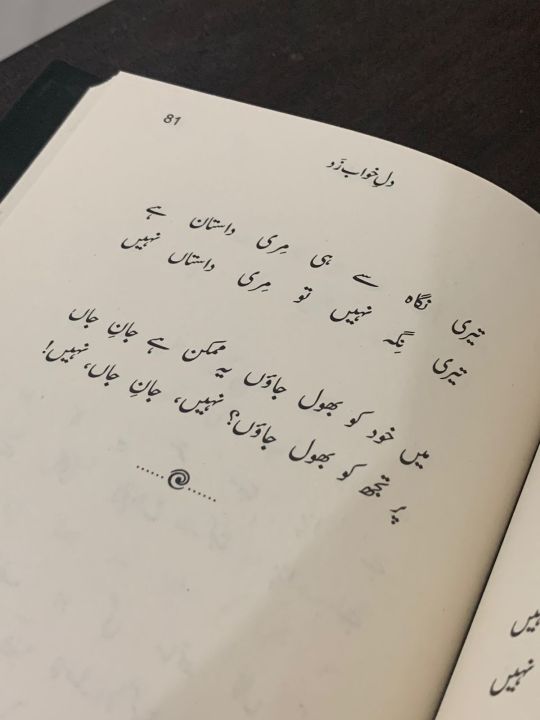 81
دلِ خواب زَد
تیری نگاہ سے ہی مِری داستان ہے
تیری نِگہ نہیں تو مِری داستاں نہیں
میں خود کو بھول جاؤں یہ ممکن ہے جانِ جاں
پر تجھ کو بھول جاؤں؟ نہیں، جانِ جاں، نہیں!
نہیں